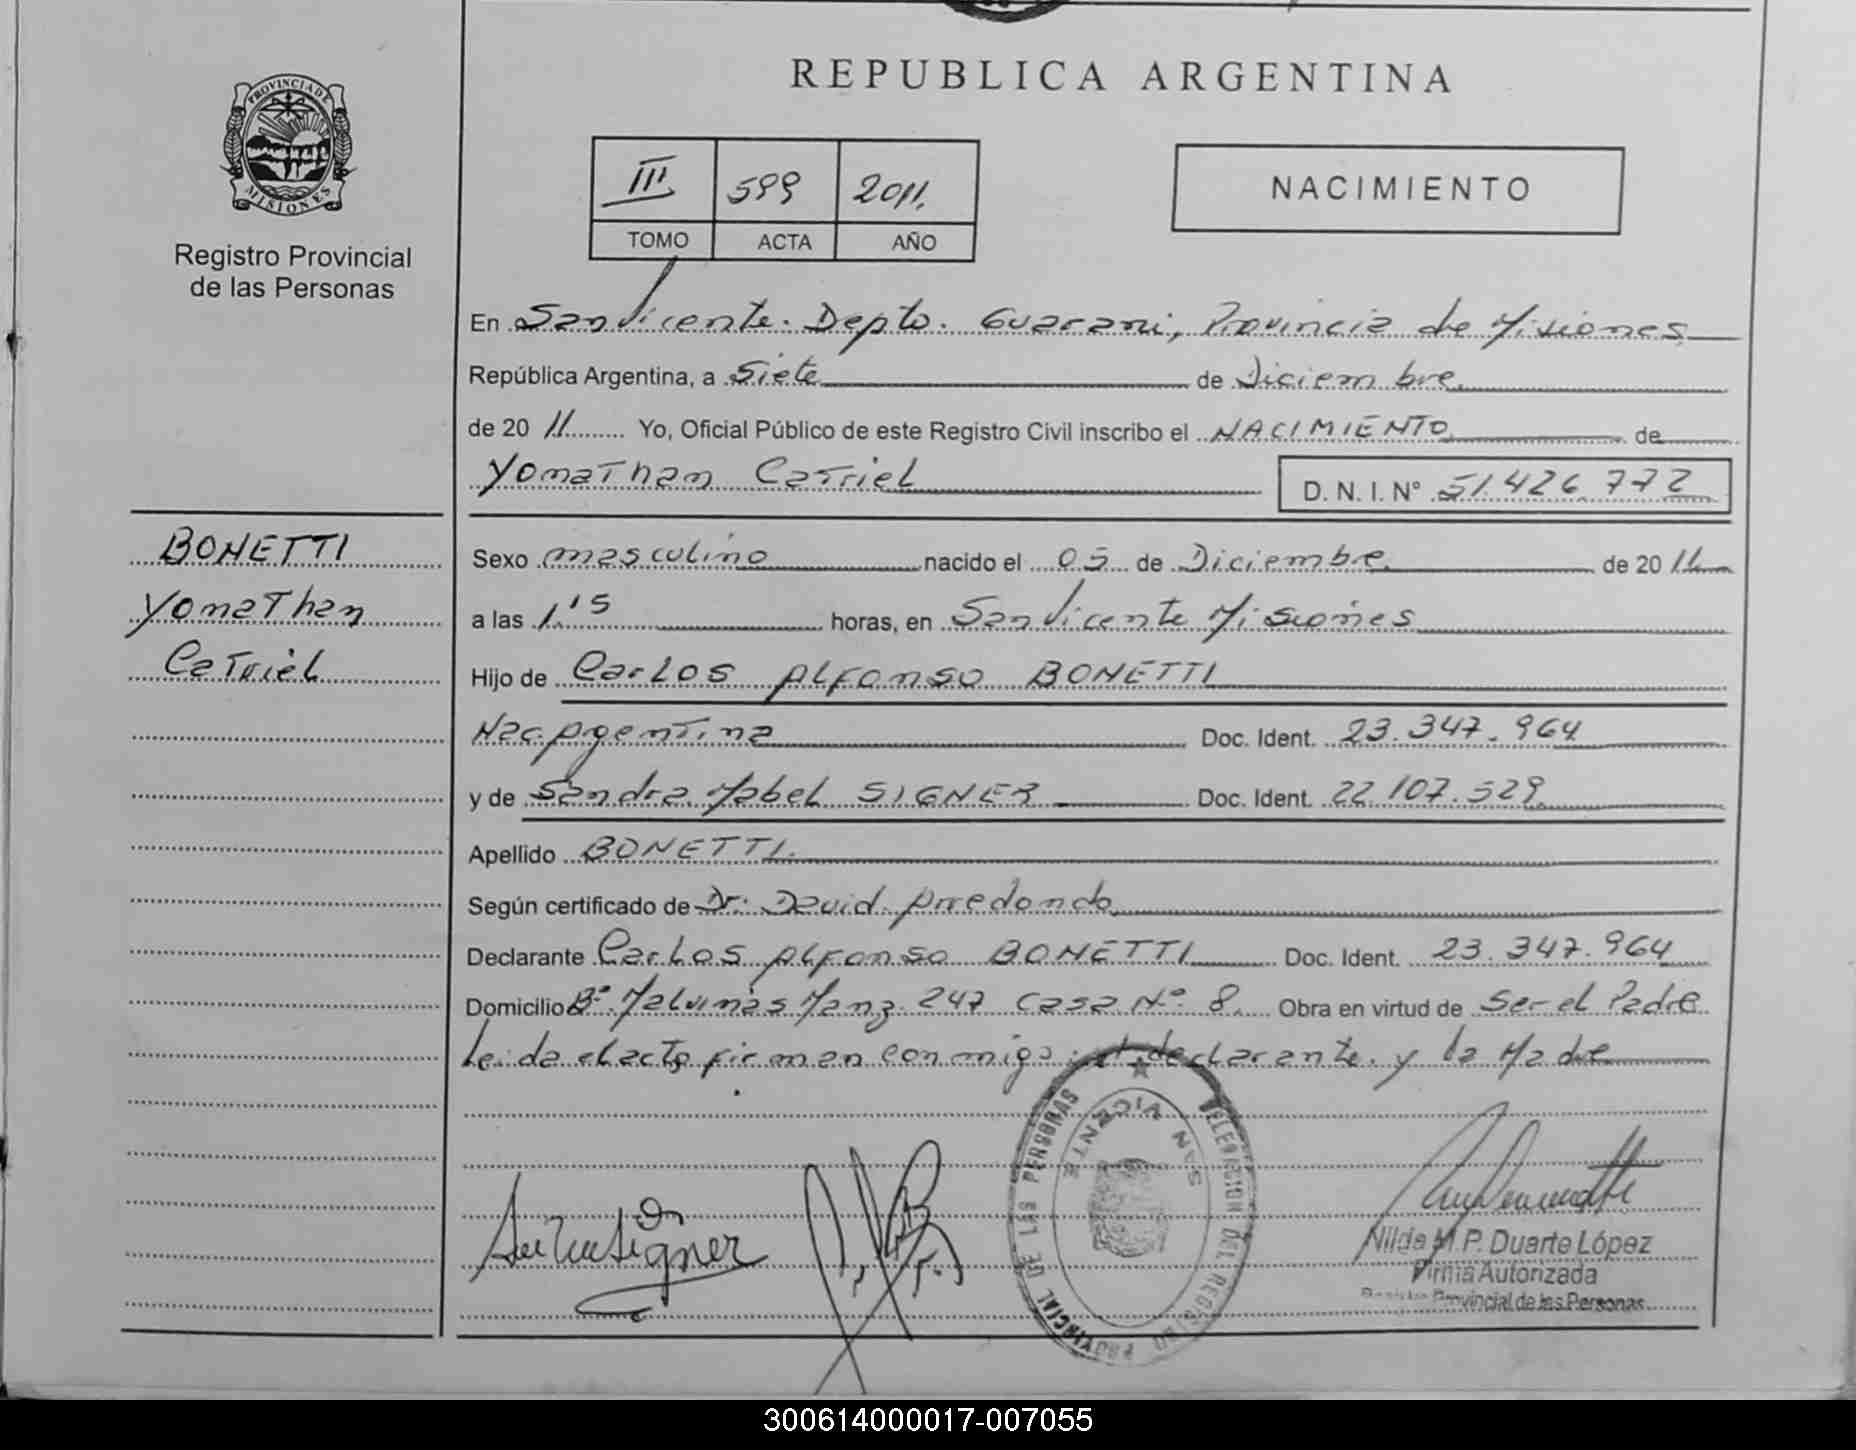 REPUBLICA ARGENTINA
PROVINCIA DE
MISIONES
Registro Provincial
de las Personas
III 599 2011.
TOMO ACTA AÑO
NACIMIENTO
En San Vicente. Depto. Guarani, Provincia de Misiones
República Argentina, a Siete de Diciembre
de 2011 Yo, Oficial Público de este Registro Civil inscribo el NACIMIENTO de
Yonathan Catriel D. N. I. Nº 51.426.772
BONETTI
Yonathan
Catriel
Sexo masculino nacido el 05 de Diciembre de 2011
a las 1.15 horas, en San Vicente Misiones
Hijo de Carlos Alfonso BONETTI
Nac. Argentina Doc. Ident. 23.347.964
y de Sandra Mabel SIGNER Doc. Ident. 22.107.529
Apellido BONETTI.
Según certificado de Dr. David Arredondo
Declarante Carlos Alfonso BONETTI Doc. Ident. 23.347.964
Domicilio Bº. Malvinas Manz. 247 Casa Nº. 8. Obra en virtud de Ser el Padre
Leida el acta firman conmigo: el declarante y la Madre
DELEGACION DEL REGISTRO PROVINCIAL DE LAS PERSONAS
SAN VICENTE
Nilda M.P. Duarte López
Firma Autorizada
Registro Provincial de las Personas
300614000017-007055